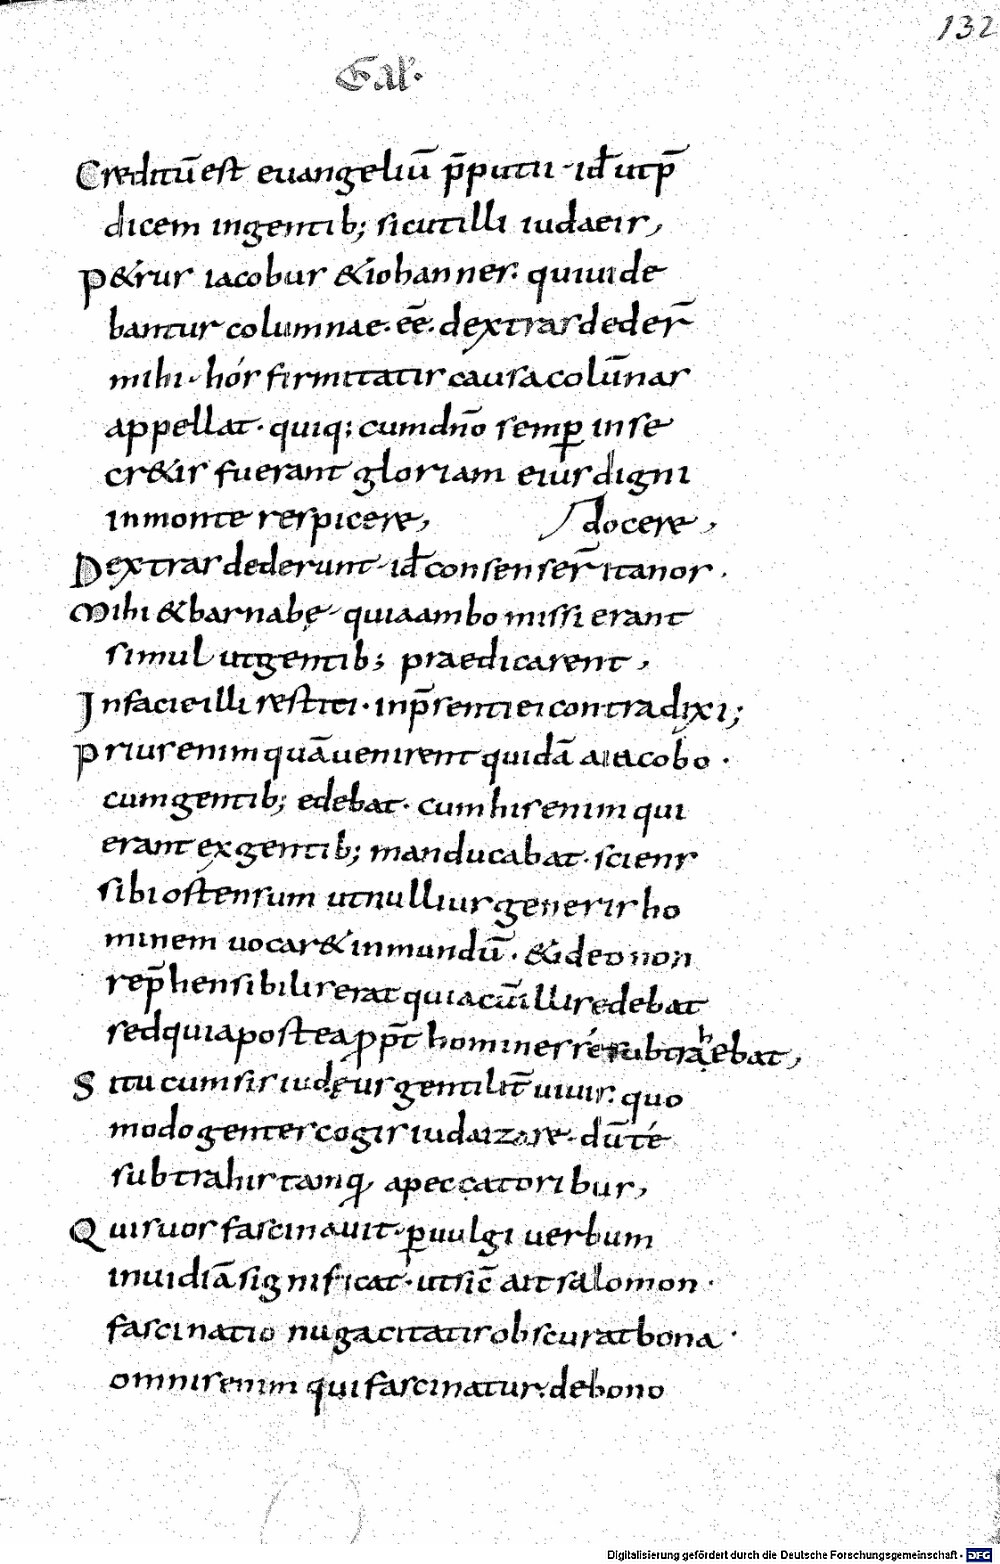 132
Gal.
Creditū est euangeliū p̄putii · id̄ ut p̄
dicem in gentib; sicut illi iudaeis,
Petrus iacobus & iohannes. qui uide
bantur columnae. ēē. dextras deder̄
mihi · hós firmitatis causa colūnas
appellat · quiq; cum dn̄o semꝑ in se
cr&is fuerant gloriam eius digni
in monte respicere, docere,
Dextras dederunt · id̄ consenser̄ ita nos.
Mihi & barnabę · quia ambo missi erant
simul ut gentib; praedicarent,
In facie illi restiti · in p̄senti ei contradixi;
Prius enim quā uenirent quidā a iacobo ·
cum gentib; edebat · cum his enim qui
erant ex gentib; manducabat · sciens
sibi ostensum ut nullius generis ho
minem uocar& inmundū · & ideo non
rep̄hensibilis erat quia cū illis edebat
sed quia postea ꝓpt̄ homines sé subtrahebat,
Si tu cum sis iudęus gentilit̄ uiuis. quo
modo gentes cogis iudaizare · dū té
subtrahis tamq̄ a peccatoribus,
Quis uos fascinauit · ꝑ uulgi uerbum
inuidiā significat · ut sic̄ ait salomon ·
fascinatio nugacitatis obscurat bona ·
omnis enim qui fascinatur. de bono
Digitalisierung gefördert durch die Deutsche Forschungsgemeinschaft - DFG